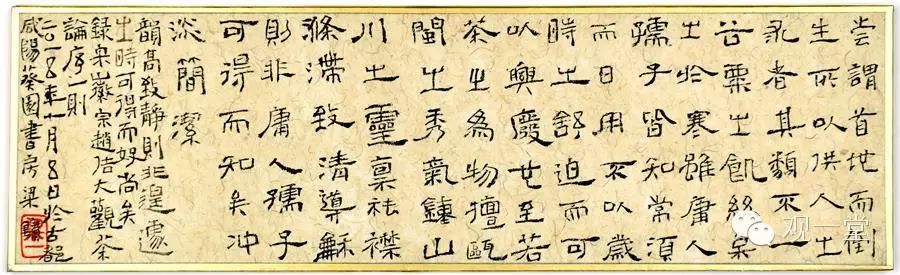 嘗謂首地而倒
生所以供人之
求者其類不一
谷粟之飢絲枲
之於寒雖庸人
孺子皆知常須
而日用不以歲
時之舒迫而可
以興廢也至若
茶之為物擅甌
閩之秀氣鍾山
川之靈稟祛襟
滌滯致清導龢
則非庸人孺子
可得而知矣沖
淡簡潔
韻高致靜則非遑遽
之時可得而好尚矣
錄宋徽宗趙佶大觀茶
論序一則
一五年十月五日於古都
咸陽葵園書房梁
观一堂